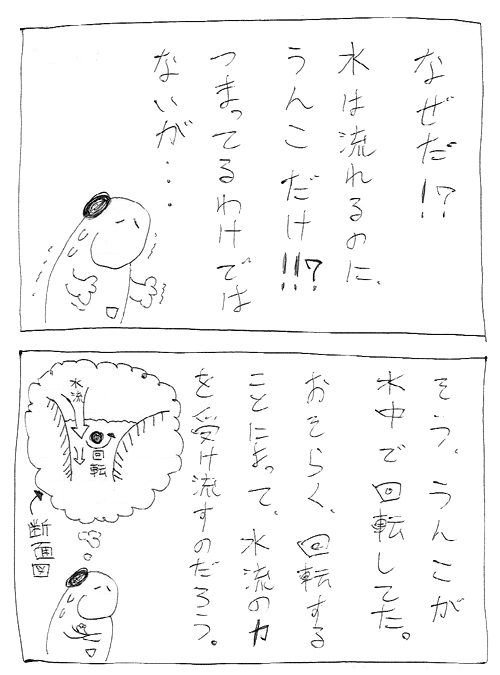 なぜだ!?
水は流れるのに、
うんこだけ!!?
つまってるわけでは
ないが・・・
そう、うんこが
水中で回転してた。
おそらく、回転する
ことによって、水流の力
を受け流すのだろう。
水流
回転
断面図